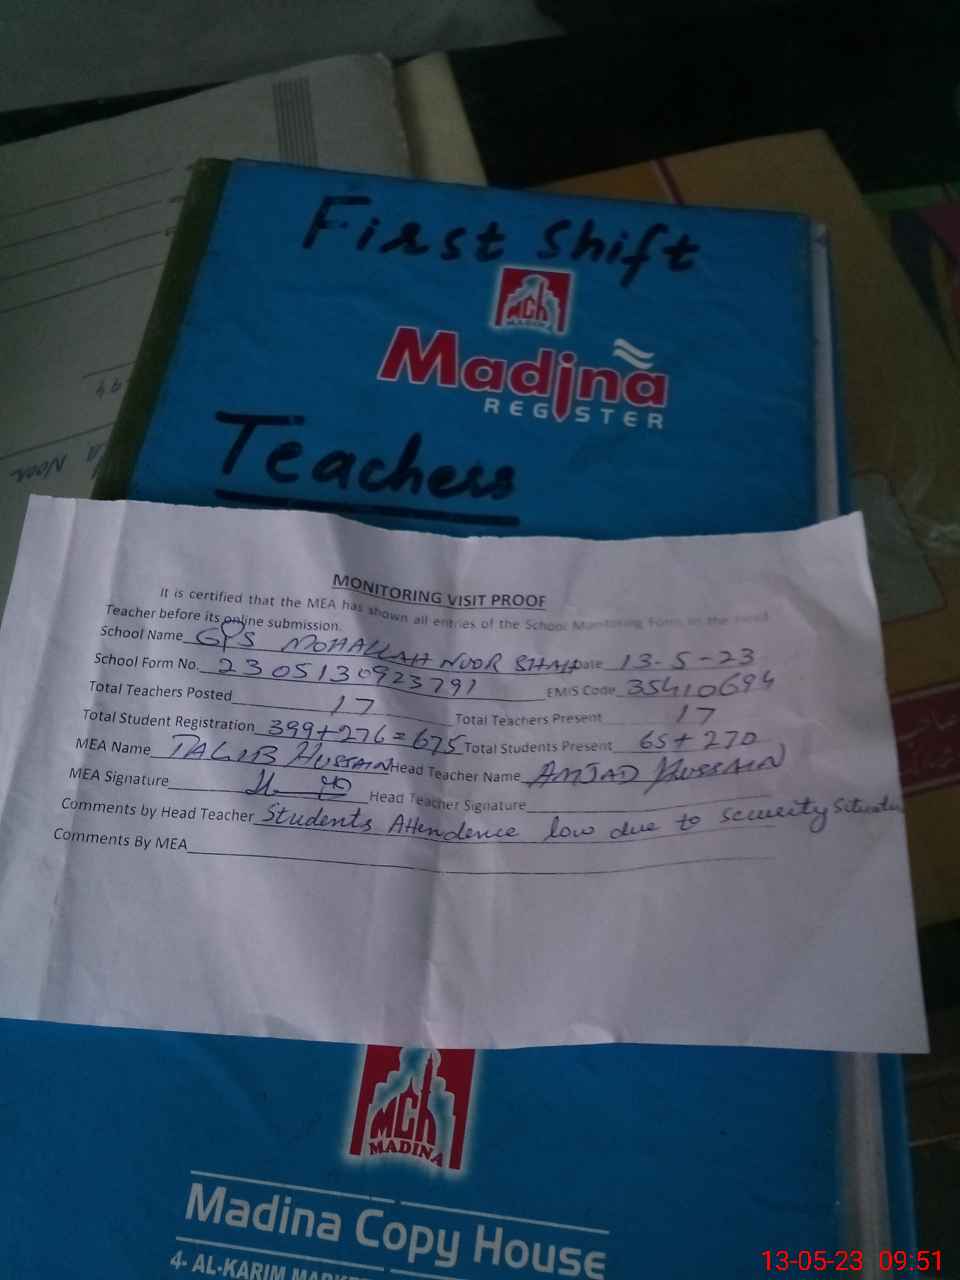 First Shift
MCh
MADINA
Madina
REGISTER
Teachers
MONITORING VISIT PROOF
It is certified that the MEA has shown all entries of the School Monitoring Form to the Head
Teacher before its online submission.
School Name GPS MOHALLAH NOOR SHAH Date 13-5-23
School Form No. 2305130923791 EMIS Code 35410694
Total Teachers Posted 17 Total Teachers Present 17
Total Student Registration 399+276=675 Total Students Present 65+270
MEA Name TALIB HUSSAIN Head Teacher Name AMJAD HUSSAIN
MEA Signature Head Teacher Signature
Comments by Head Teacher Students Attendence low due to security
Comments By MEA
MCh
MADINA
Madina Copy House
4- AL-KARIM
13-05-23 09:51